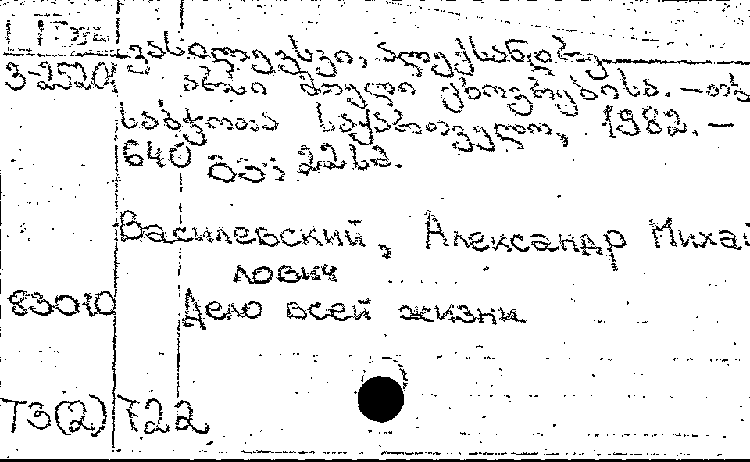 ვასილევსკი, ალექსანდრე
3-2520 საქმე მთელი ცხოვრებისა. — თბ
საბჭოთა საქართველო, 1982. —
640 გვ; 22 სმ.
Василевский, Александр Михай
лович
83010 Дело всей жизни
Т3(2)722